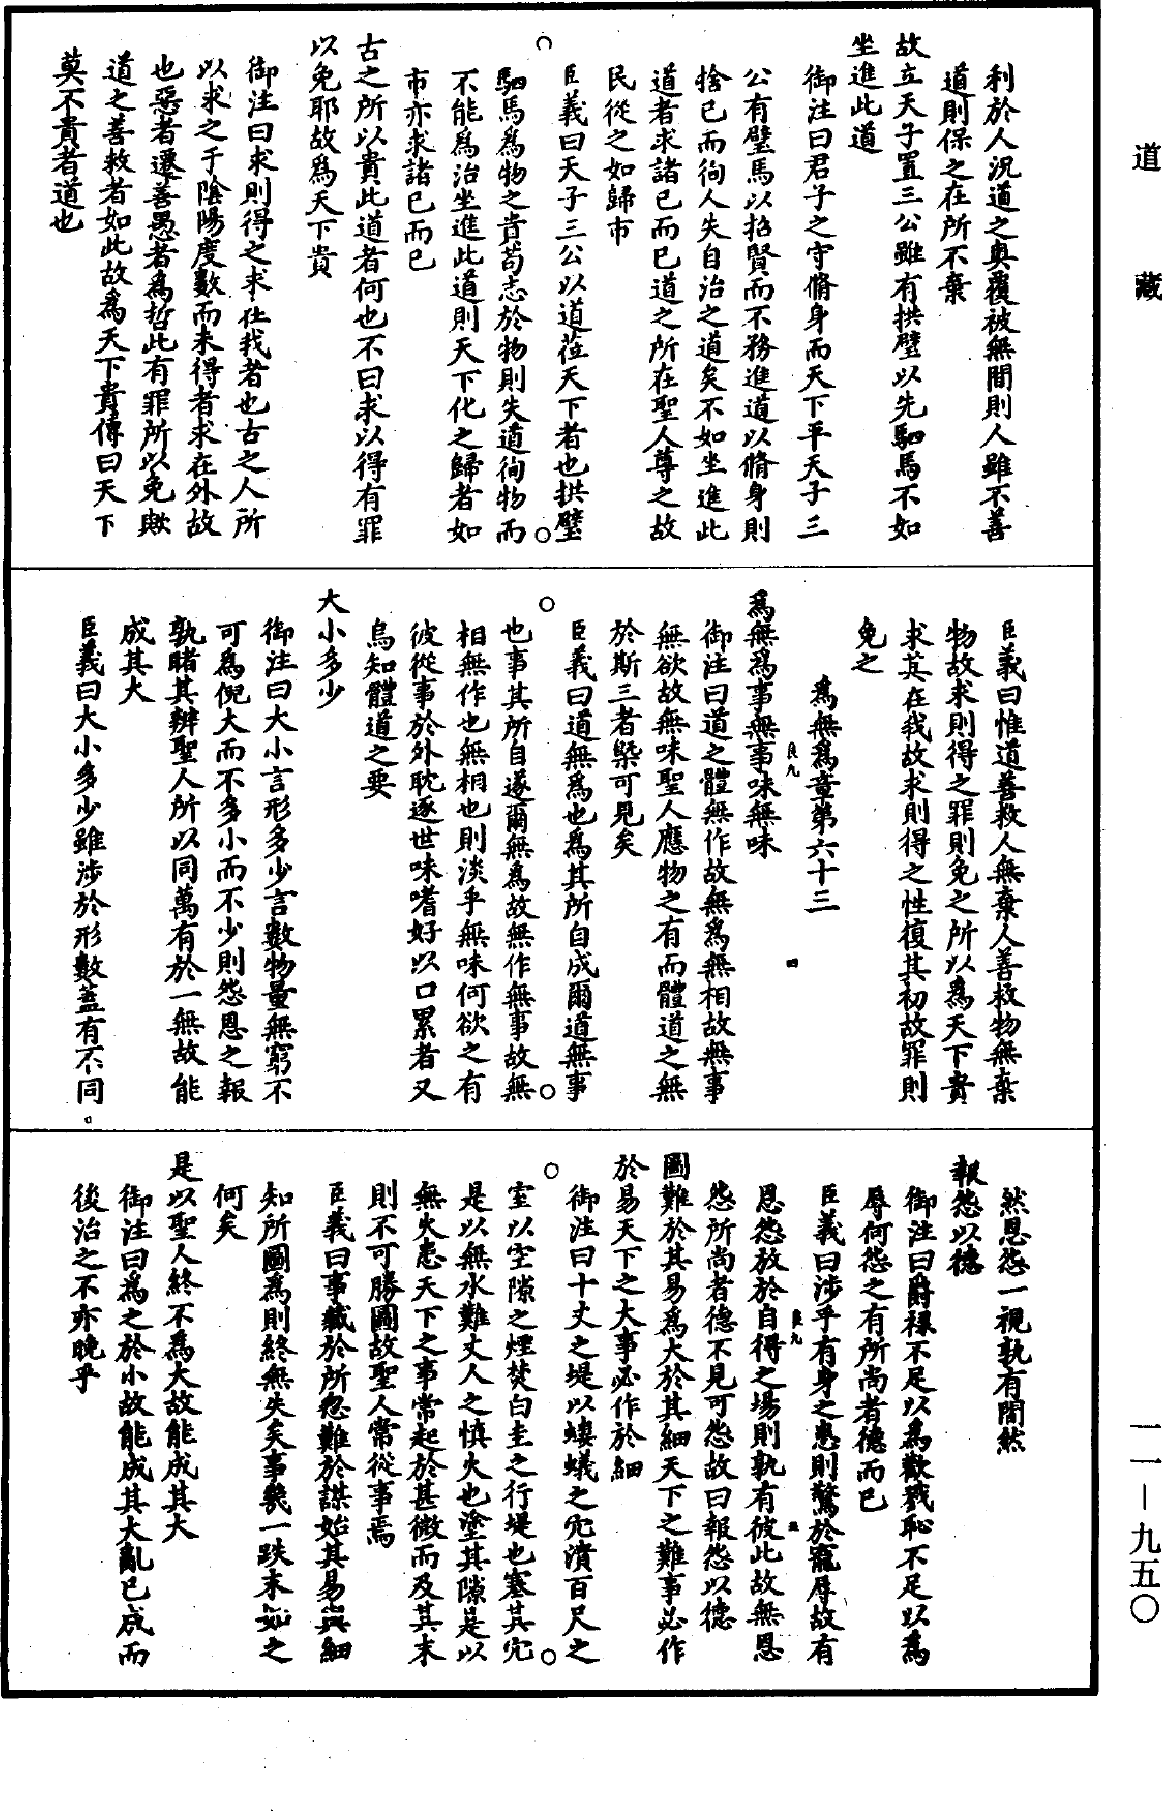 道藏
利於人況道之奧覆被無間則人雖不善
道則保之在所不棄
故立天子置三公雖有拱璧以先駟馬不如
坐進此道
御注曰君子之守脩身而天下平天子三
公有璧馬以招賢而不務進道以脩身則
捨已而徇人失自治之道矣不如坐進此
道者求諸已而已道之所在聖人尊之故
民從之如歸市
臣義曰天子三公以道莅天下者也拱璧
駟馬為物之貴苟志於物則失道徇物而
不能為治坐進此道則天下化之歸者如
市亦求諸已而已
古之所以貴此道者何也不曰求以得有罪
以免耶故為天下貴
御注曰求則得之求在我者也古之人所
以求之于陰陽度數而未得者求在外故
也惡者遷善愚者為哲此有罪所以免歟
道之善救者如此故為天下貴傳曰天下
莫不貴者道也
臣義曰惟道善救人無棄人善救物無棄
物故求則得之罪則免之所以為天下貴
求其在我故求則得之性復其初故罪則
免之
為無為章第六十三
為無為事無事味無味
御注曰道之體無作故無為無相故無事
無欲故無味聖人應物之有而體道之無
於斯三者槩可見矣
臣義曰道無為也為其所自成爾道無事
也事其所自遂爾無為故無作無事故無
相無作也無相也則淡乎無味何欲之有
彼從事於外耽逐世味嗜好以口累者又
烏知體道之要
大小多少
御注曰大小言形多少言數物量無窮不
可為倪大而不多小而不少則怨恩之報
孰睹其辨聖人所以同萬有於一無故能
成其大
臣義曰大小多少雖涉於形數蓋有不同
然恩怨一視孰有間然
報怨以德
御注曰爵祿不足以為勸戮恥不足以為
辱何怨之有所尚者德而已
臣義曰涉乎有身之患則驚於寵辱故有
恩怨放於自得之場則孰有彼此故無恩
怨所尚者德不見可怨故曰報怨以德
圖難於其易為大於其細天下之難事必作
於易天下之大事必作於細
御注曰十丈之堤以螻蟻之穴潰百尺之
室以空隙之煙焚白圭之行堤也塞其穴
是以無水難丈人之慎火也塗其隙是以
無火患天下之事常起於甚微而及其末
則不可勝圖故聖人常從事焉
臣義曰事藏於所忽難於謀始其易與細
知所圖為則終無失矣事幾一跌末如之
何矣
是以聖人終不為大故能成其大
御注曰為之於小故能成其大亂已成而
後治之不亦晚乎
一一—九五〇